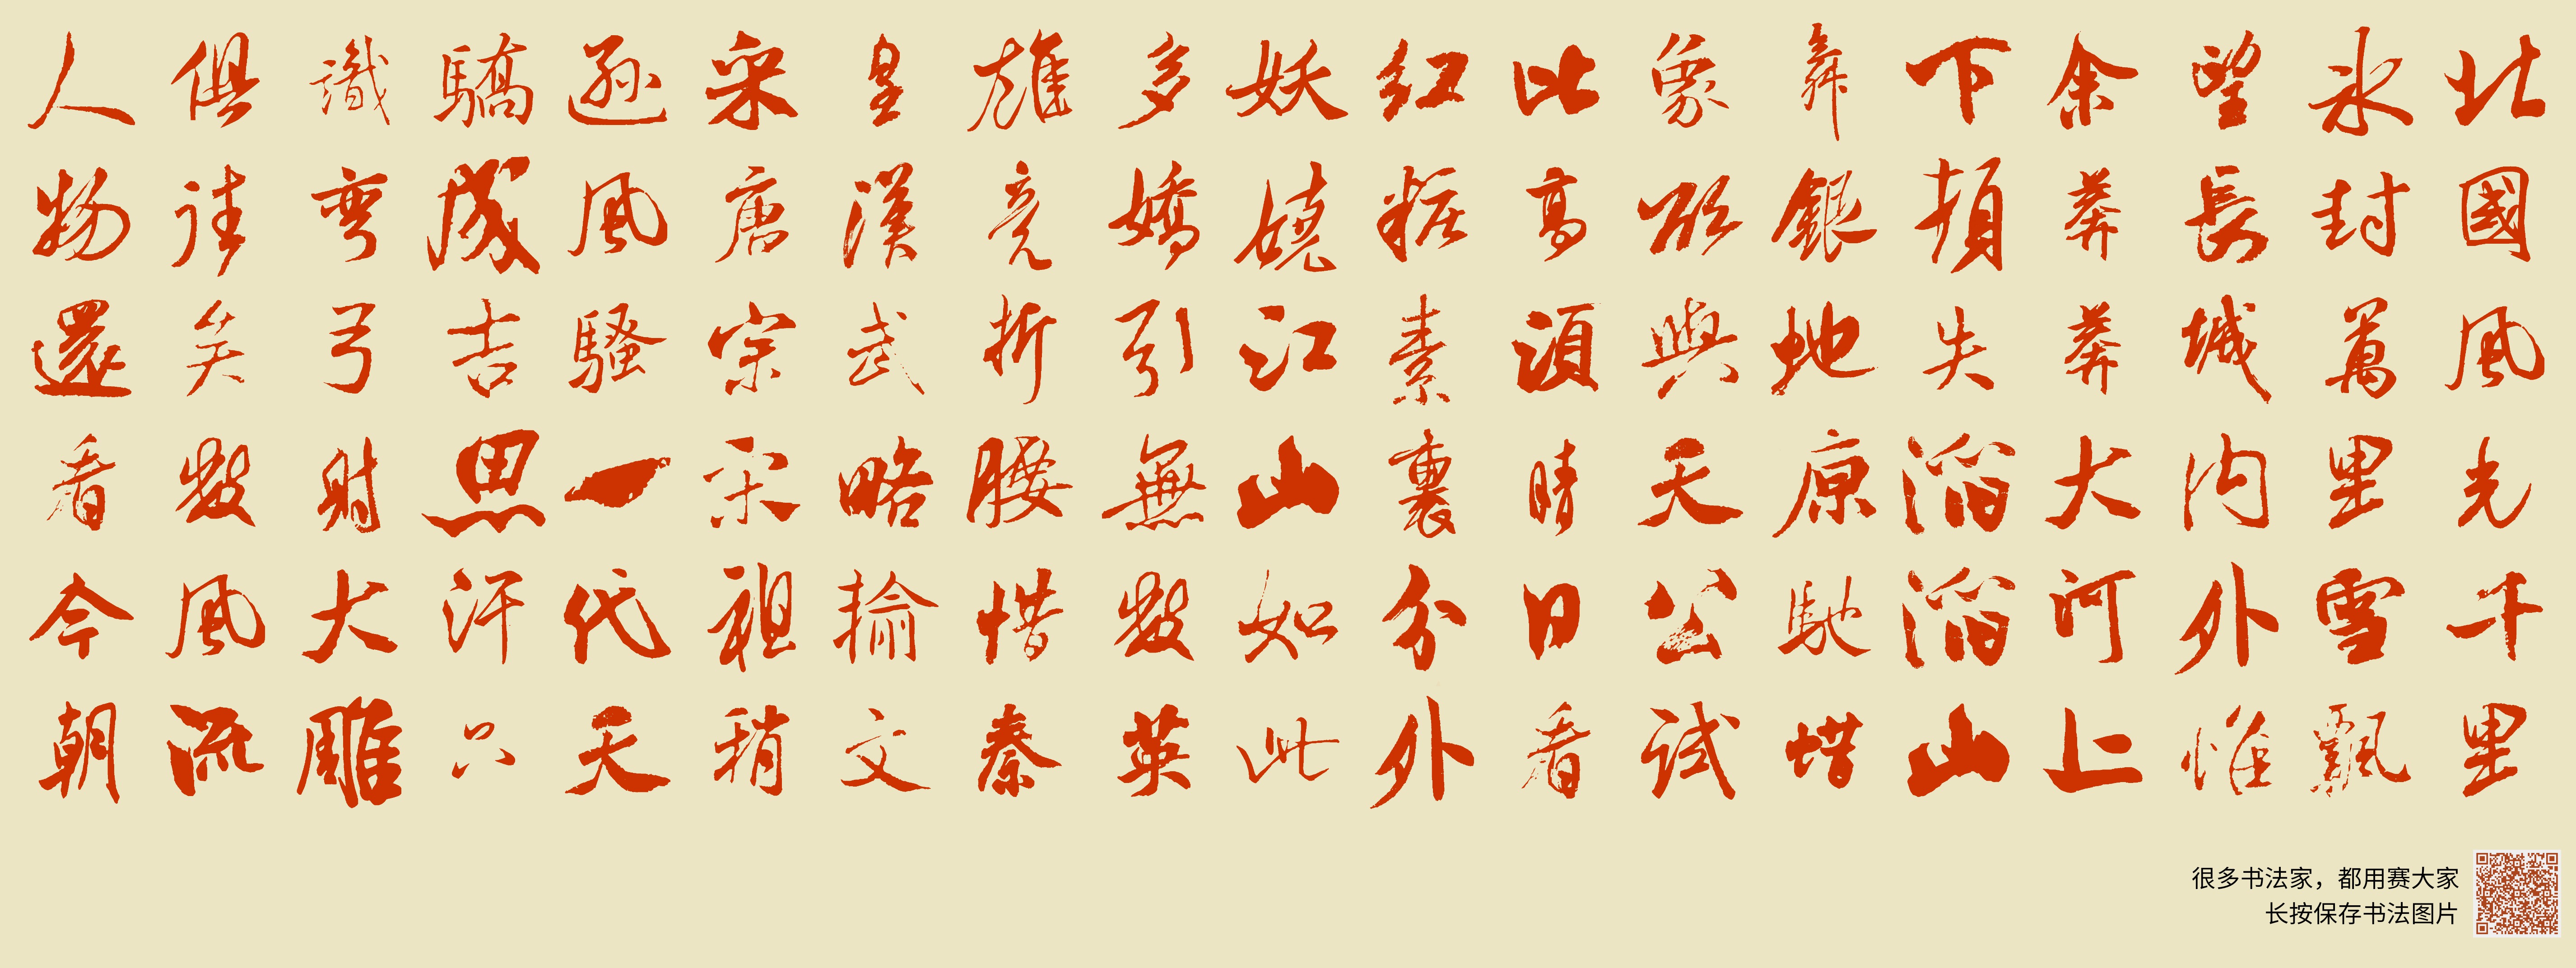 北國風光千里
氷封萬里雪飄
望長城内外惟
余莽莽大河上
下頓失滔滔山
舞銀虵原馳蜡
象欲與天公試
比高須晴日看
红粧素裏分外
妖嬈江山如此
多嬌引無數英
雄竞折腰惜秦
皇漢武略揄文
采唐宗宋祖稍
遜風騷一代天
驕成吉思汗只
識彎弓射大雕
俱往矣數風流
人物還看今朝
很多书法家，都用赛大家
长按保存书法图片